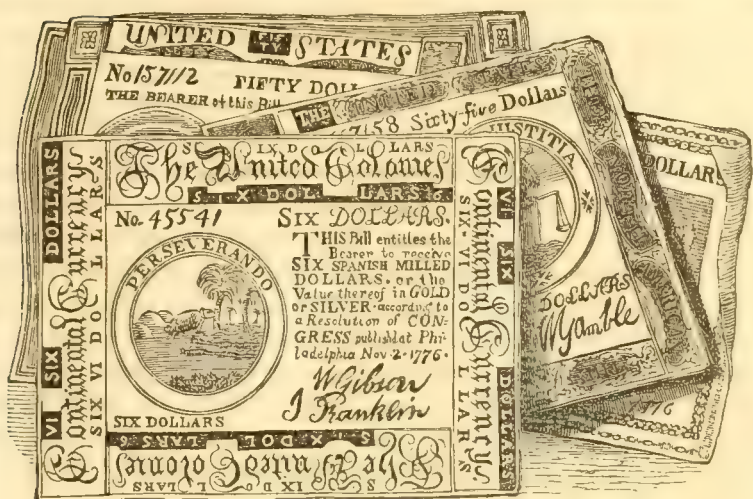 UNITED FIFTY STATES
No 157112 FIFTY DOL
THE BEARER of this Bill
THE UNITED STATES
7158 Sixty-five Dollars
JUSTITIA
DOLLARS
DOLLARS
W Gamble
1776
SIX DOLLARS
The United Colonies
SIX DOLLARS
No. 45541 SIX DOLLARS.
THIS Bill entitles the
Bearer to receive
SIX SPANISH MILLED
DOLLARS, or the
Value thereof in GOLD
or SILVER according to
a Resolution of CON-
GRESS publishd at Phi-
ladelphia Nov. 2. 1776.
W Gibson
J Franklin
PERSEVERANDO
SIX DOLLARS
VI SIX DOLLARS
Continental Currency
SIX VI DOLLARS
Continental Currency
SIX VI DOLLARS
VI SIX DOLLARS
SIX DOLLARS
The United Colonies
SIX DOLLARS